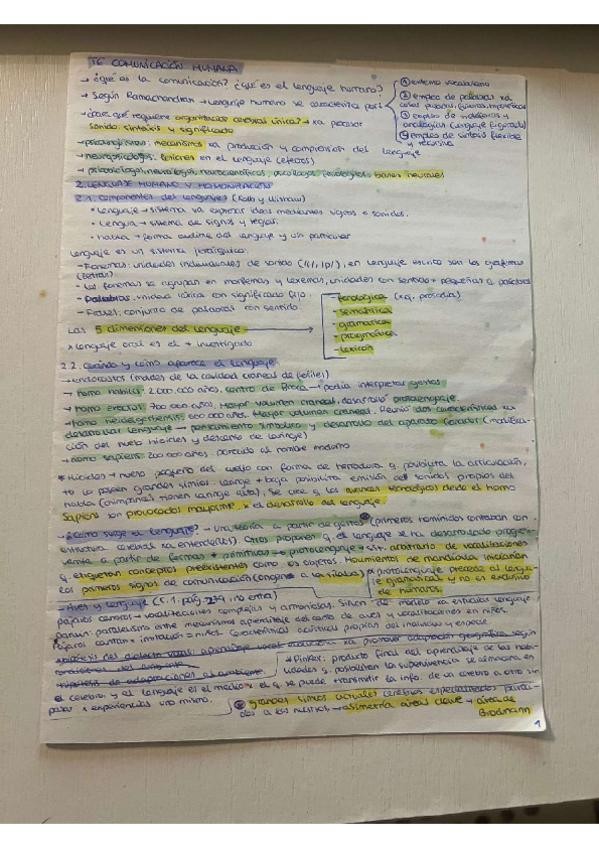 T6 COMUNICACIÓN HUMANA
→ ¿Qué es la comunicación? ¿Qué es el lenguaje humano?
→ Según Ramachandran → Lenguaje humano se caracteriza por:
① extenso vocabulario
② empleo de palabras xa
③ empleo de metáforas y
analogías (Lenguaje figurado)
④ empleo de sintaxis flexible
y recursiva
requiere organización cerebral única? → xa procesar
sonido: sintaxis y significado
→ psicolingüistas: mecanismos xa producción y comprensión del lenguaje
→ neuropsicólogos: lesiones en el lenguaje (efectos)
bases neurales
2. LENGUAJE HUMANO Y HOMINIZACIÓN
2.1. Componentes del lenguaje (Kolb y Whishaw)
• Lenguaje → sistema xa expresar ideas mediante signos o sonidos.
• Lengua → sistema de signos y reglas.
• Habla → forma audible del lenguaje y un particular
Lenguaje es un sistema jerárquico:
- Fonemas: unidades individuales de sonido (/k/, /p/), en lenguaje escrito son las grafemas
(letras)
- Los fonemas se agrupan en morfemas y lexemas, unidades con sentido + pequeñas a palabras
- Palabras: unidad léxica con significado fijo
- Frases: conjunto de palabras con sentido
Las 5 dimensiones del lenguaje →
- fonológica (x ej. prosodia)
- semántica
- gramatical
- pragmática
- léxicón
x Lenguaje oral es el + investigado
2.2. Cuándo y cómo aparece el lenguaje
→ endocastos (moldes de la cavidad craneal de fósiles)
→ homo habilis: 2.000.000 años, centro de Broca → podía interpretar gestos
→ homo erectus: 700.000 años. Mayor volumen craneal, desarrolló protolenguaje.
→ homo heidelbergensis: 600.000 años. Mayor volumen craneal. Reunió dos características xa
desarrollar lenguaje → pensamiento simbólico y desarrollo del aparato fonador (modifica-
ción del hueso hioides y descenso de laringe)
→ homo sapiens: 200.000 años, parecido al hombre moderno
* Hioides → hueso pequeño del cuello con forma de herradura q. posibilita la articulación,
tb lo poseen grandes simios. Laringe + baja posibilita emisión de sonidos propios del
habla (chimpancé tienen laringe alta). Se cree q. los avances
sapiens son provocados mayormente x el desarrollo del lenguaje.
→ ¿Cómo surge el lenguaje? → una teoría a partir de gestos (primeros homínidos contaban con
estructura cerebral xa entenderlos) Otros proponen q. el lenguaje se ha desarrollado progre-
sivamente a partir de formas + primitivas → protolenguaje → sist. arbitrario de vocalizaciones
q. etiquetan conceptos preexistentes como los objetos. Movimientos de mandíbula iniciarían
los primeros signos de comunicación (origen a la sílaba)
* protolenguaje precede al lengua-
je gramatical y no es exclusivo
de humanos.
→ Aves y lenguaje
pájaros cantores → vocalizaciones complejas y armoniosas. Sirven de modelo xa estudiar lenguaje
Darwin: paralelismo entre mecanismos aprendizaje del canto de aves y vocalizaciones en niños.
* Pinker: producto final del aprendizaje de las habi-
lidades q. posibilitan la supervivencia se almacena en
el cerebro, y el lenguaje es el medio x el q. se puede transmitir la info. de un cerebro a otro sin
pasar x experiencias uno mismo.
grandes simios actuales cerebros especializados pareci-
dos a los nuestros, → asimetría áreas clave → área de
Brodmann
1